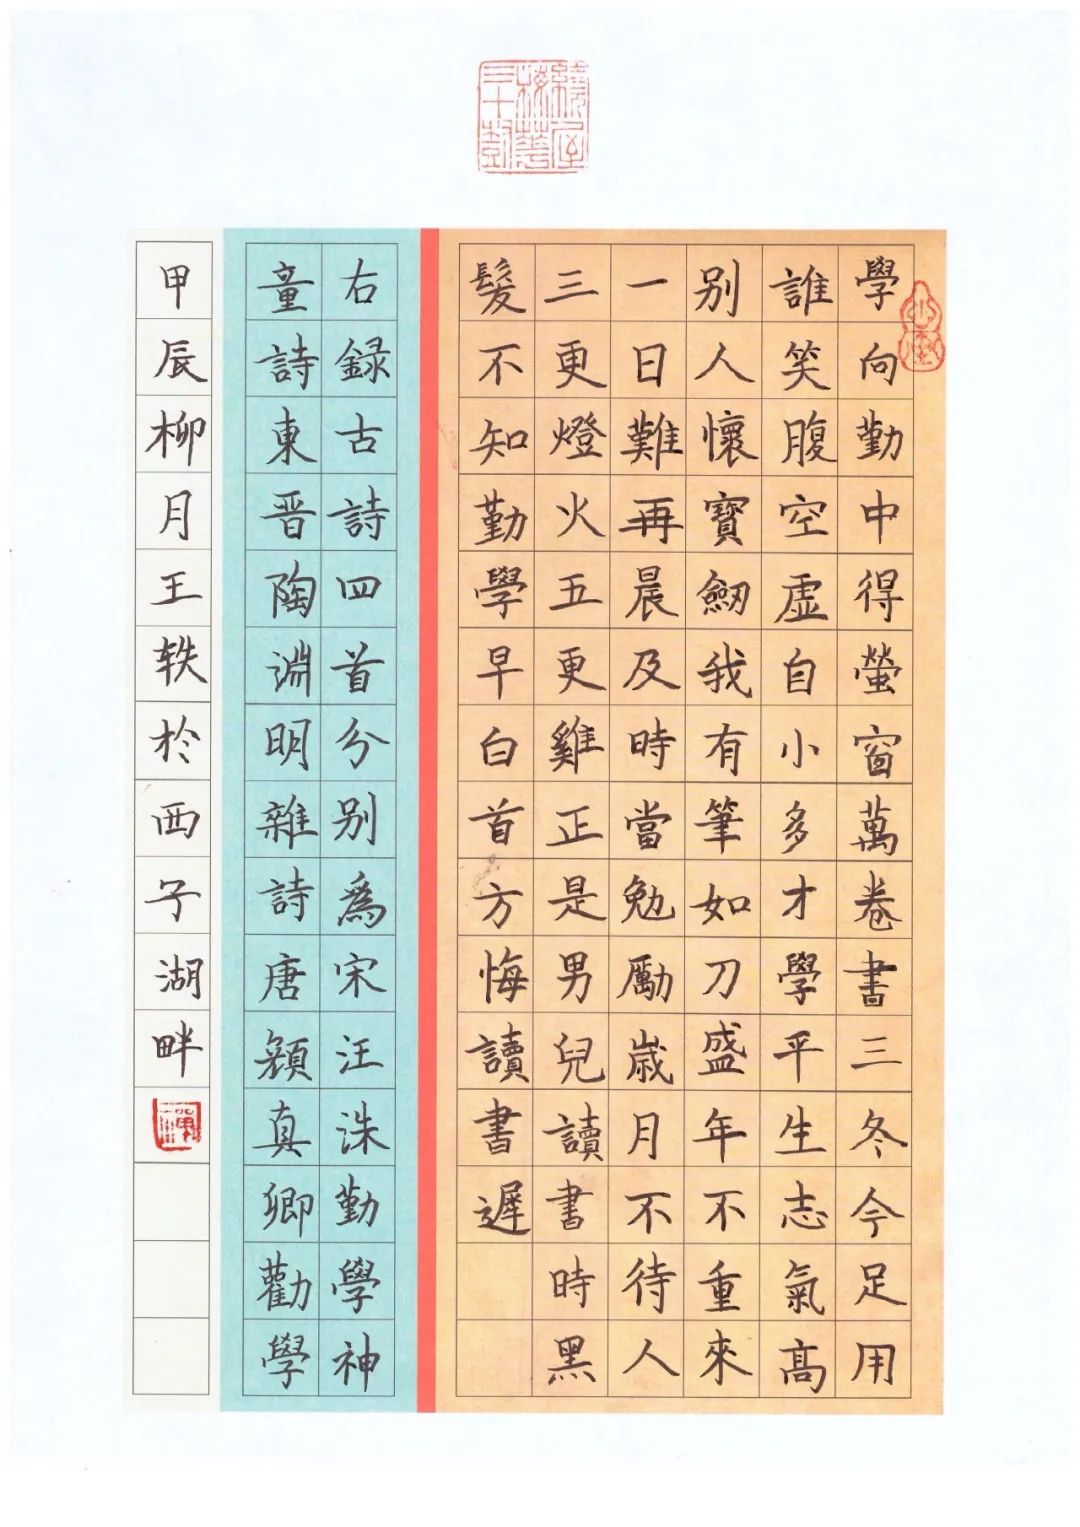 繞屋梅華三十樹
學向勤中得螢窗萬卷書三冬今足用
誰笑腹空虛自小多才學平生志氣高
別人懷寶劔我有筆如刀盛年不重來
一日難再晨及時當勉勵歲月不待人
三更燈火五更雞正是男兒讀書時黑
髮不知勤學早白首方悔讀書遲
右録古詩四首分别爲宋汪洙勤學神
童詩東晋陶淵明雜詩唐顔真卿勸學
甲辰柳月王轶於西子湖畔